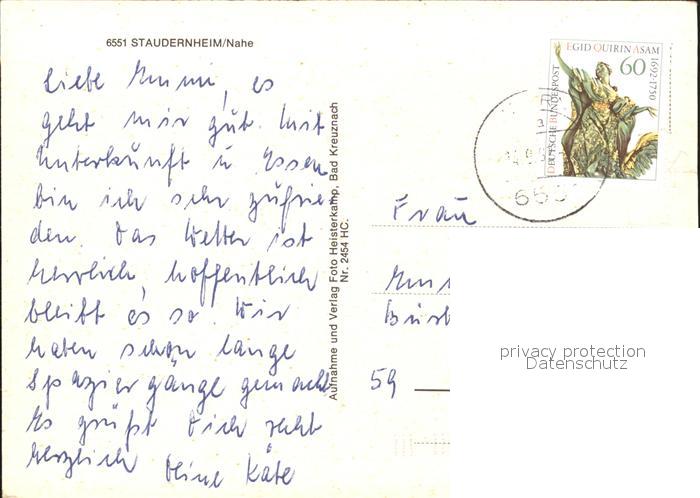 6551 STAUDERNHEIM/Nahe
Liebe Emmi, es
geht mir gut. Mit
Unterkunft u Essen
bin ich sehr zufrie
den. Das Wetter ist
herrlich, hoffentlich
bleibt es so. Wir
haben schon lange
Spaziergänge gemacht
Es grüßt Dich recht
herzlich Deine Käte
Aufnahme und Verlag Foto Heisterkamp, Bad Kreuznach
Nr. 2454 HC.
EGID QUIRIN ASAM
1692-1750
60
DEUTSCHE BUNDESPOST
Frau
59
privacy protection
Datenschutz